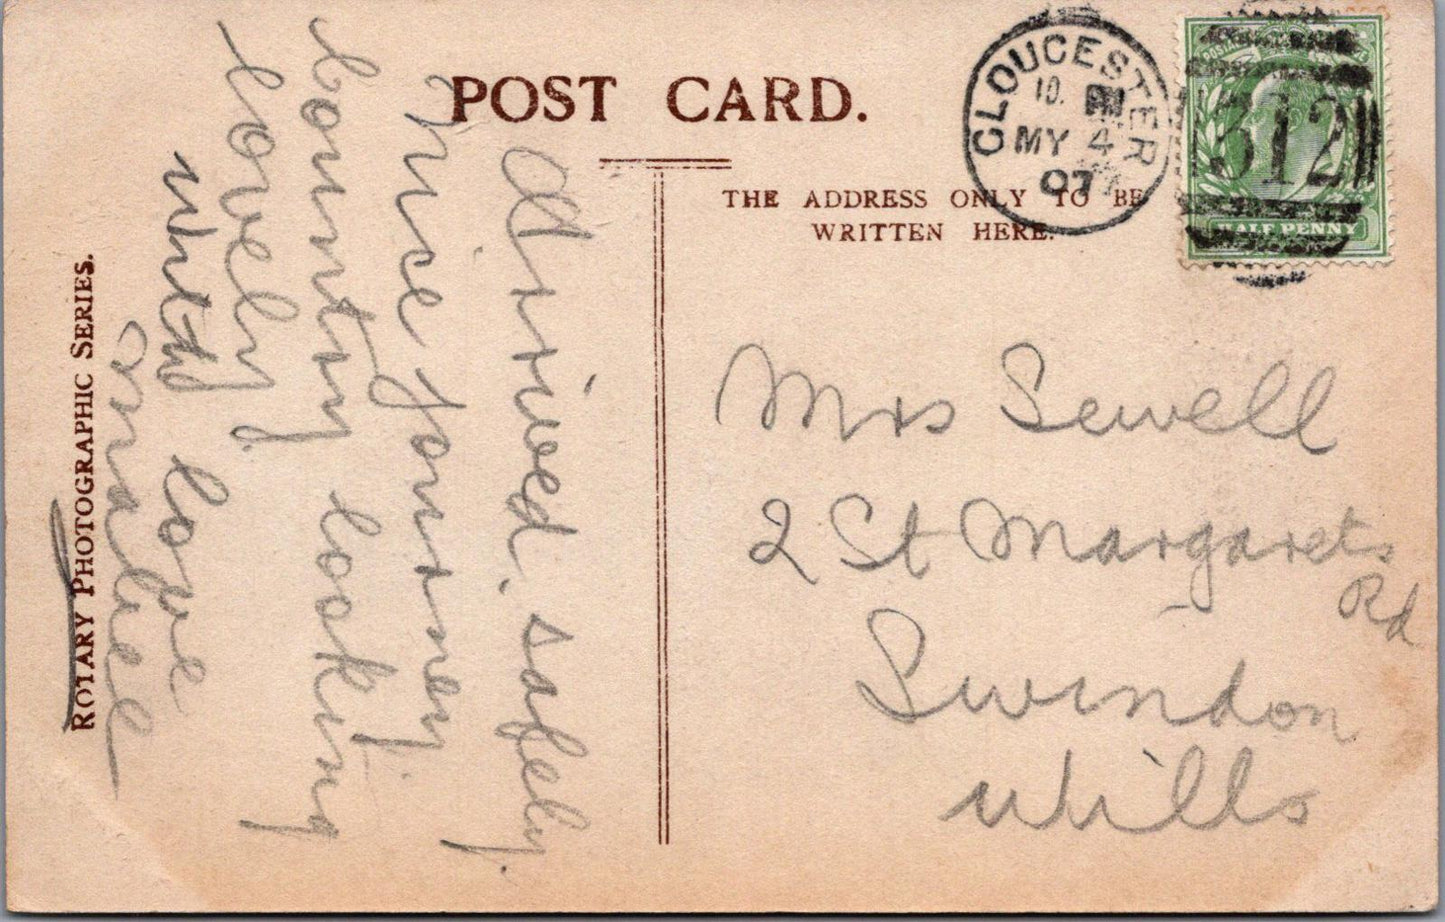 POST CARD.
THE ADDRESS ONLY TO BE
WRITTEN HERE.
GLOUCESTER
MY 4
07
312
HALF PENNY
Arrived. safely.
Nice journey.
country looking
lovely.
with love
Mabel
Mrs Sewell
2 St Margarets
Rd
Swindon
Wilts
ROTARY PHOTOGRAPHIC SERIES.